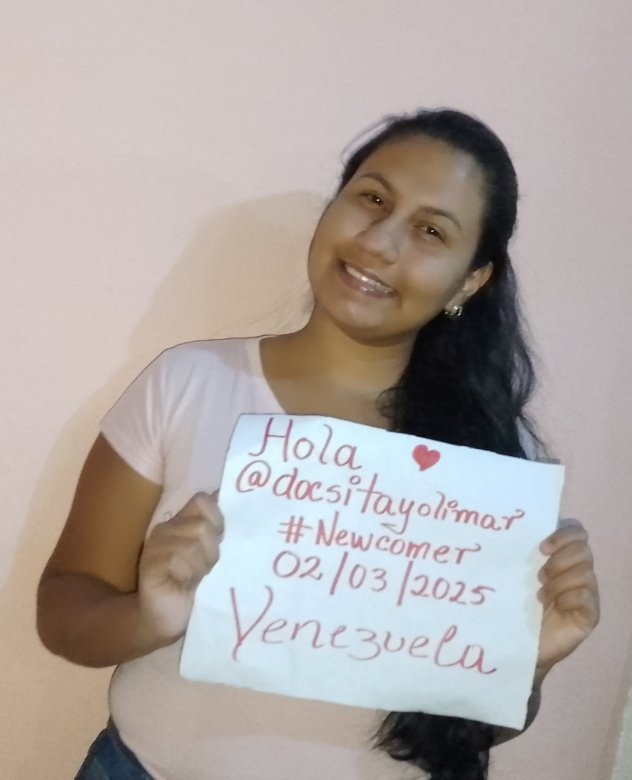 Hola
@docsitayolimar
#Newcomer
02/03/2025
Venezuela